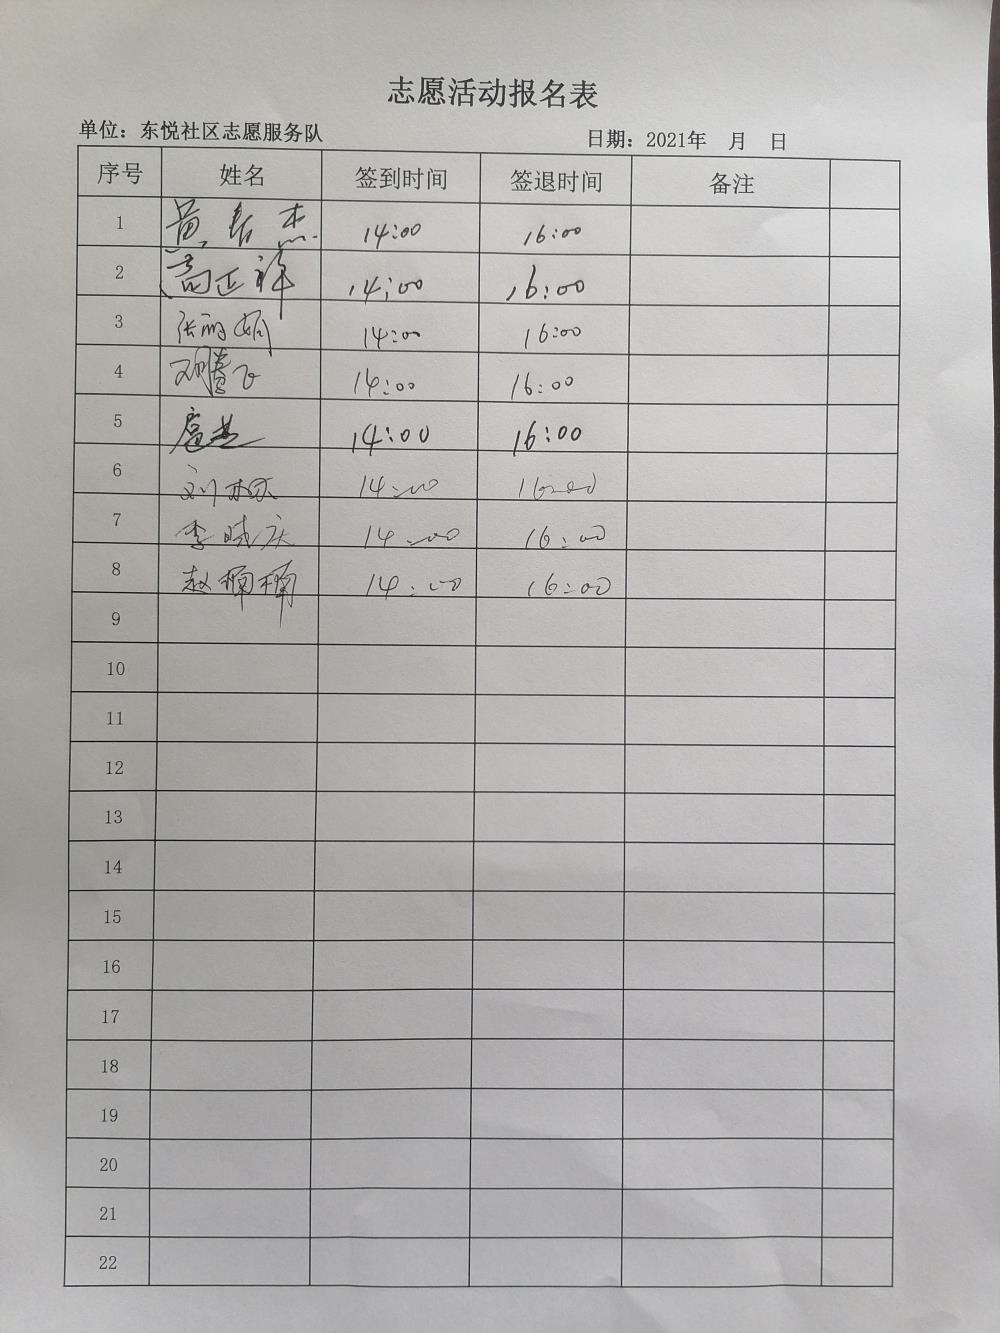 志愿活动报名表
单位：东悦社区志愿服务队 日期：2021年 月 日
序号 姓名 签到时间 签退时间 备注
1 黄春杰 14:00 16:00
2 高正祥 14:00 16:00
3 张丽娟 14:00 16:00
4 邓腾飞 14:00 16:00
5 14:00 16:00
6 刘 14:00 16:00
7 李晓庆 14:00 16:00
8 赵楠楠 14:00 16:00
9
10
11
12
13
14
15
16
17
18
19
20
21
22